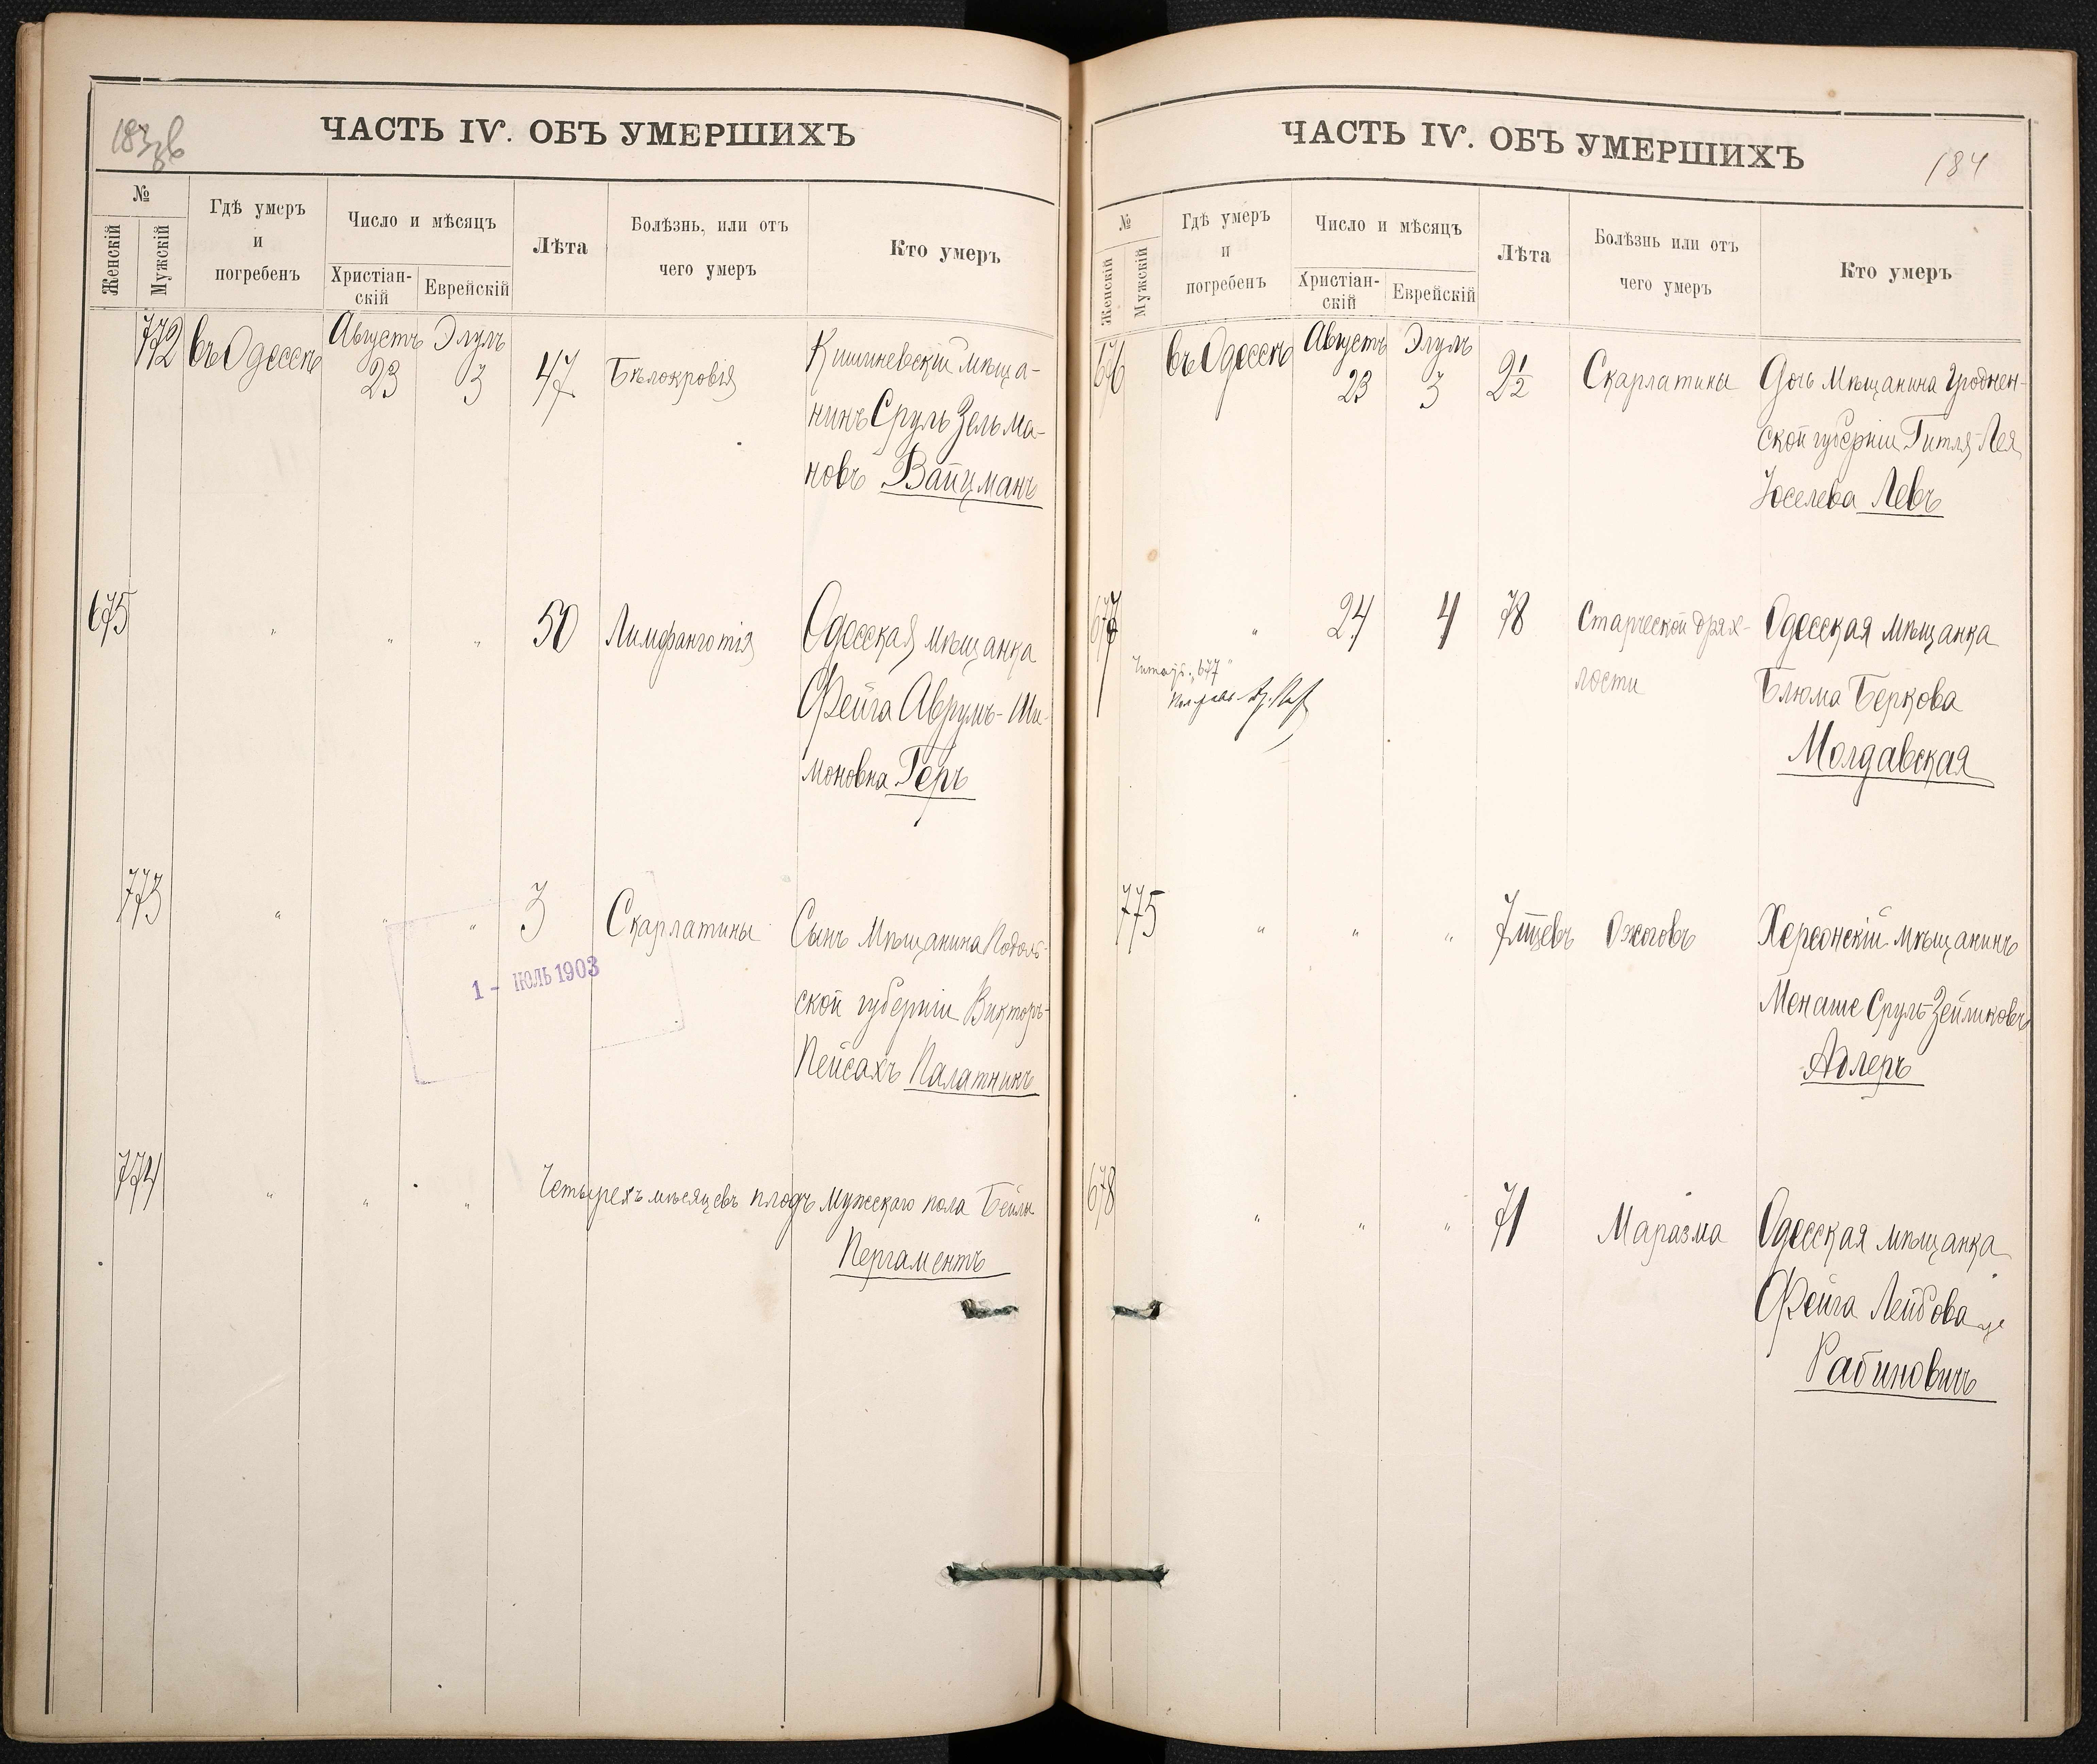 183 об
ЧАСТЬ IV. ОБЪ УМЕРШИХЪ
№
Женскій
Мужскій
Гдѣ умеръ
и
погребенъ
Число и мѣсяцъ
Христіан-
скій
Еврейскій
Лѣта
Болѣзнь, или отъ
чего умеръ
Кто умеръ
772 въ Одессѣ Августъ 23 Элулъ 3 47 Бѣлокровія Кишиневскій мѣща-
нинъ Сруль Зельма-
новъ Вайцманъ
675 " " " 50 Одесская мѣщанка
Фейга Аврумъ-Ши-
моновна Геръ
773 " " " 3 Скарлатины Сынъ Мѣщанина Подоль-
ской губерніи Викторъ-
Пейсахъ Палатникъ
1 - ІЮЛЬ 1903
774 " " " Четырехъ мѣсяцевъ плодъ мужскаго пола Бейлы
Пергаментъ
184
ЧАСТЬ IV. ОБЪ УМЕРШИХЪ
№
Женскій
Мужскій
Гдѣ умеръ
и
погребенъ
Число и мѣсяцъ
Христіан-
скій
Еврейскій
Лѣта
Болѣзнь или отъ
чего умеръ
Кто умеръ
676 въ Одессѣ Августъ 23 Элулъ 3 2 1/2 Скарлатины Дочь Мѣщанина Гроднен-
ской губерніи Гитля-Лея
Іоселева Левъ
677 " 24 4 78 Старческой дрях-
лости Одесская мѣщанка
Блюма Беркова
Молдавская
Читай: "677"
775 " " " 7 мѣсцевъ Ожоговъ Херсонскій мѣщанинъ
Менаше Сруль-Зейликовъ
Адлеръ
678 " " " 71 Маразма Одесская мѣщанка
Фейга Лейбова
Рабиновичъ